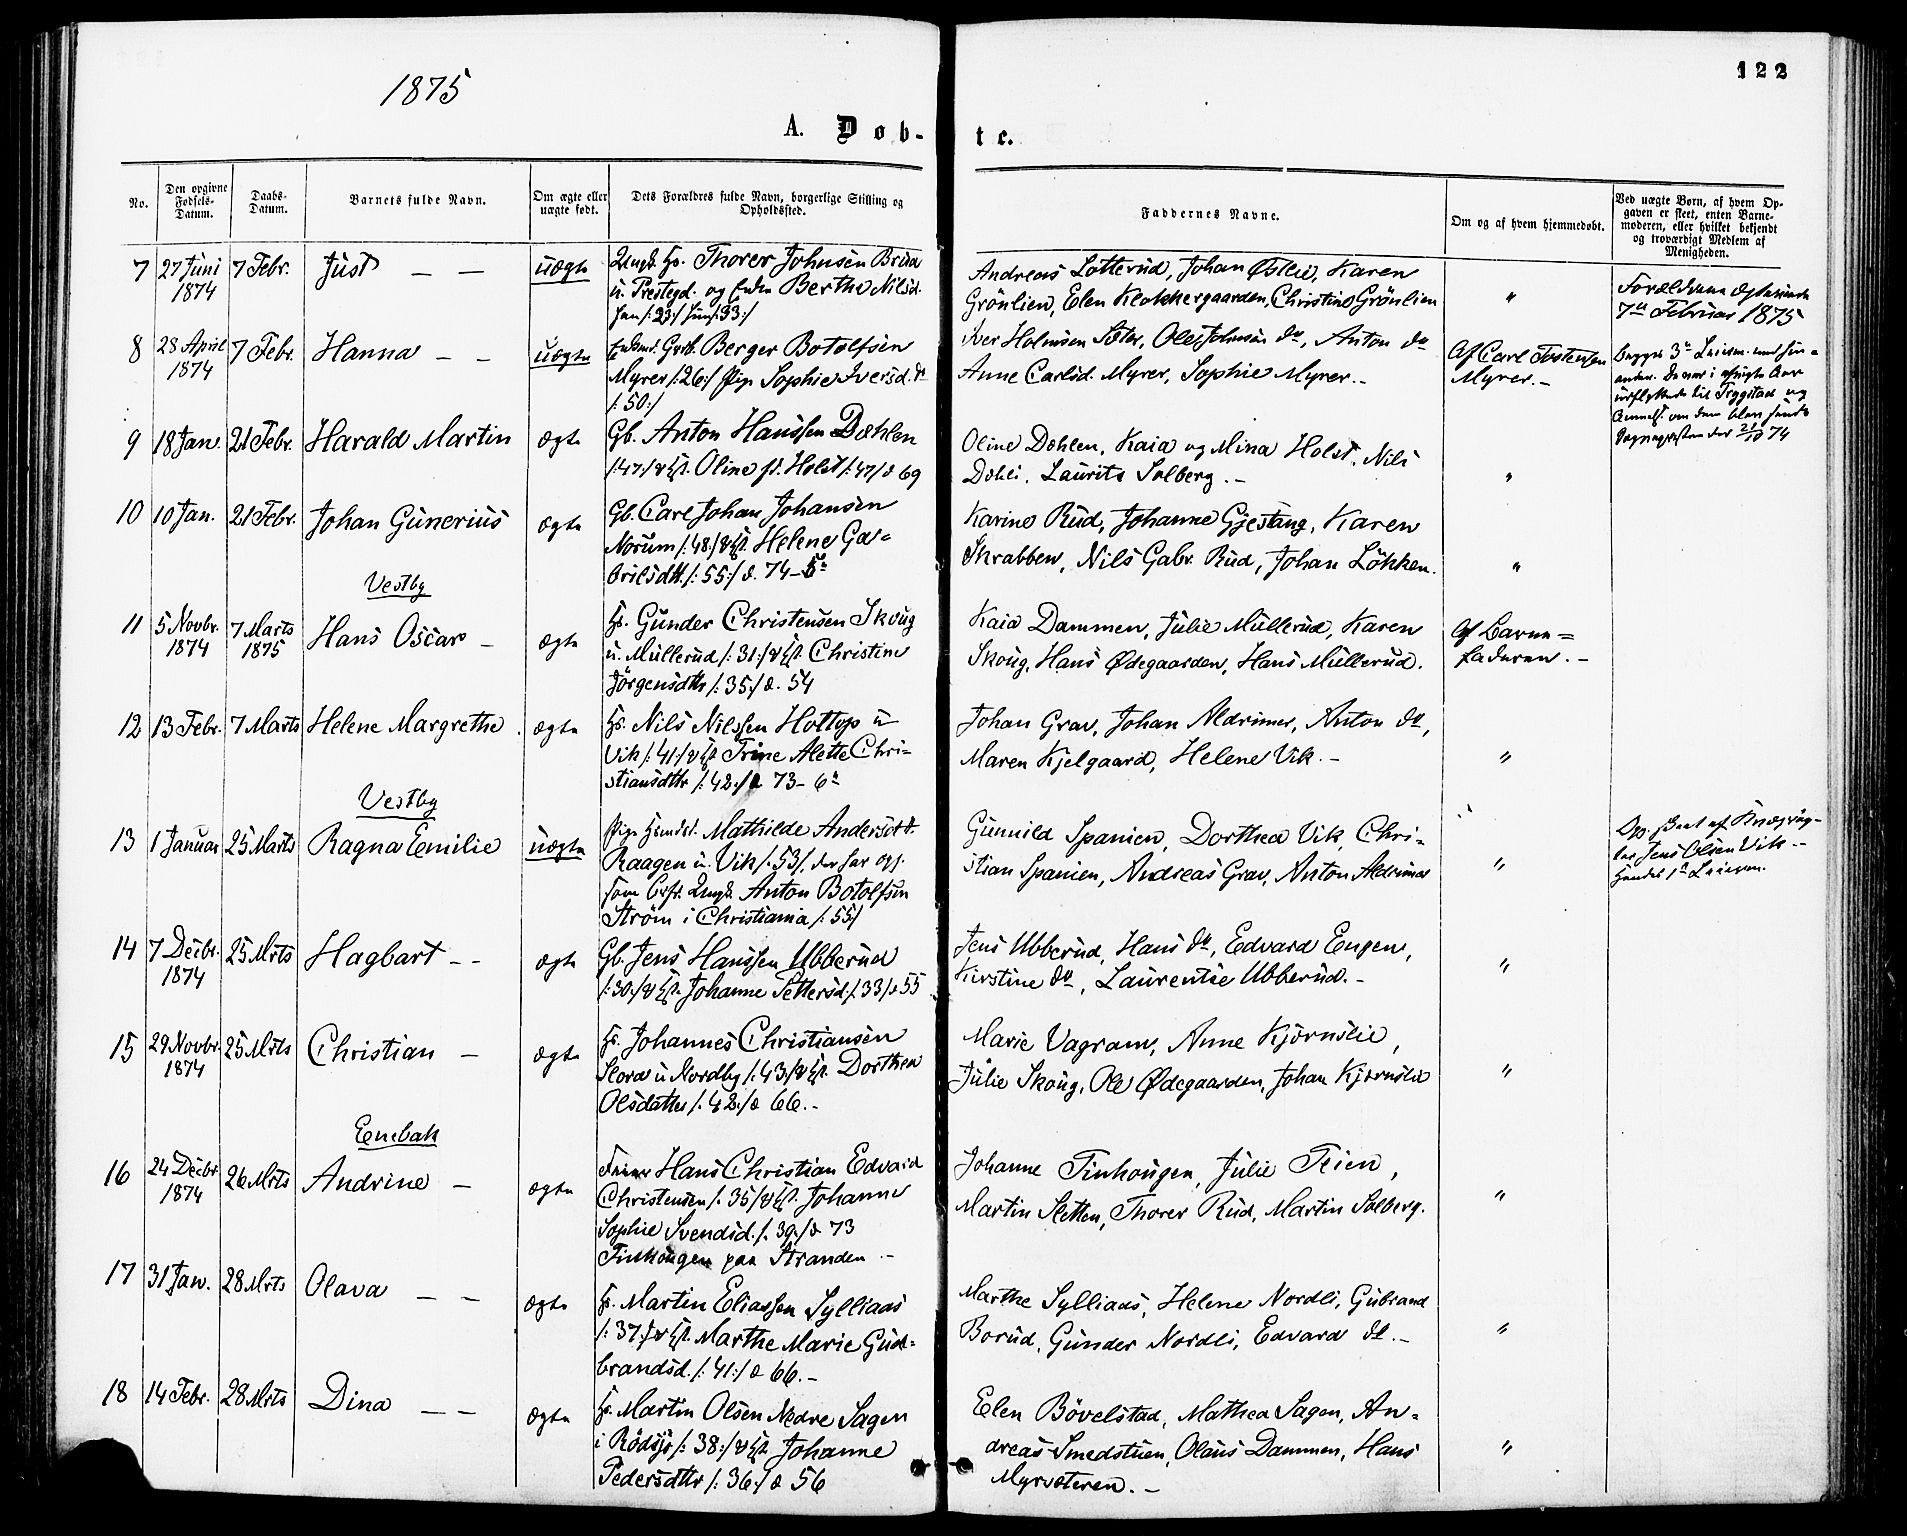 1875
122
A. Døb-
te.
No.
Den opgivne Fødsels-Datum.
Daabs-Datum.
Barnets fulde Navn.
Om ægte eller uægte født.
Dets Forældres fulde Navn, borgerlige Stilling og Opholdsted.
Faddernes Navne.
Om og af hvem hjemmedøbt.
Ved uægte Børn, af hvem Opgaven er skeet, enten Barnemoderen, eller hvilket bekjendt og troværdigt Medlem af Menigheden.
7 27 Juni 1874 7 Febr. Just — — uægte
Ungk. Hs. Thorer Johnsen
u. Prestegd. og Berthe Nilsd.
/:23:/ /:33:/
Andreas Lotterud, Johan Østlie, Karen
Grönlien, Elen Klokkergaarden, Christine Grönlien
"
Forældrene
7de Februar 1875
8 28 April 1874 7 Febr. Hanna — — uægte
Berger Botolfsen
Myrer /:26:/ Pige Sophie Iversd. do
/:50:/
Iver Holmsen Sæter, Ole Johnsen do, Anton do
Anne Carlsd. Myrer, Sophie Myrer. –
Af Carl Tostensen
Myrer. –
Begges 3die
til Trygstad og
21/10 74
9 18 Jan. 21 Febr. Harald Martin ægte
Gb. Anton Hanssen Dæhlen
/47/ & Hst. Oline f. Holst /:47/ & 69
Oline Dæhlen, Kaia og Mina Holst, Nils
Dæhli, Laurits Solberg. –
"
10 10 Jan. 21 Febr. Johan Gunerius ægte
Gb. Carl Johan Johansen
Norum /:48:/ & Hst. Helene Ga-
brilsdtt. /:55:/ d. 74 – 5te
Karine Rud, Johanne Gjestang, Karen
Skrabben, Nils Gabr. Rud, Johan Lökken.
"
Vestby
11 5 Novbr. 1874 7 Marts 1875 Hans Oscar – ægte
Hs. Gunder Christensen Skoug
u. Müllerud /:31:/ & Hst. Christine
Jörgensdtr /:35:/ d. 54
Kaia Dammen, Julie Müllerud, Karen
Skoug, Hans Ødegaarden, Hans Müllerud.
Af Barne-
faderen. –
12 13 Febr. 7 Marts Helene Margrethe. ægte
Hs. Nils Nilssen Holtop u
Vik /:41:/ & Hst. Trine Alette Chri-
stiansdtr /:42:/ d. 73 – 6te
Johan Grav, Johan Aldrimer, Anton do,
Maren Kjelgaard, Helene Vik. –
"
Vestby
13 1 Januar 25 Marts Ragna Emilie uægte
Pige Mathilde Andersdtr.
Raagen u. Vik /:53/, der har opg.
som Ungk. Anton Botolfsen
Ström i Christiania /:55/
Gunnild Spanien, Dorthea Vik, Chri-
stian Spanien, Andreas Grav, Anton Aldrimer
"
Jens Olsen Vik –
Hendes 1ste
14 7 Decbr. 1874 25 Mrts Hagbart – – ægte
Gb. Jens Hanssen Ubberud
/:30:/ & Hst. Johanne Pettersd. /:33/ & 55
Jens Ubberud, Hans do, Edvard Engen,
Kirstine do, Laurentse Ubberud. –
"
15 29 Novbr. 1874 25 Mrts Christian – ægte
Hs. Johannes Christiansen
Slora u Nordby /:43:/ & Hst. Dorthea
Olsdatter /:42:/ d 66. –
Marie Vagram, Anne Kjörnslie,
Julie Skoug, Ole Ødegaarden, Johan Kjörnslie
"
Enebak
16 24 Decbr 1874 26 Mrts Andrine – ægte
Hans Christian Edvard
Christensen /:35/ & Hst. Johanne
Sophie Svendsd. /:39:/ & 73
Finhougen paa Stranden –
Johanne Finhougen, Julie Teien,
Martin Sletten, Thorer Rud, Martin Solberg.
"
17 31 Jan. 28 Mrts Olava – – ægte
Hs. Martin Eliassen Sylliaas
/:37:/ & Hst. Marthe Marie Gud-
brandsd. /:41:/ d 66. –
Marthe Sylliaas, Helene Nordli, Gubrand
Borud, Gunder Nordli, Edvard do. –
"
18 14 Febr. 28 Mrts Dina — — ægte
Hs. Martin Olsen Nedre Sagen
i Rödsjö /:38:/ & Hst. Johanne
Pedersdtr /:36:/ d 56
Elen Bövelstad, Mathea Sagen, An-
dreas Smedstuen, Olaus Dammen, Hans
Myrsæteren. –
"